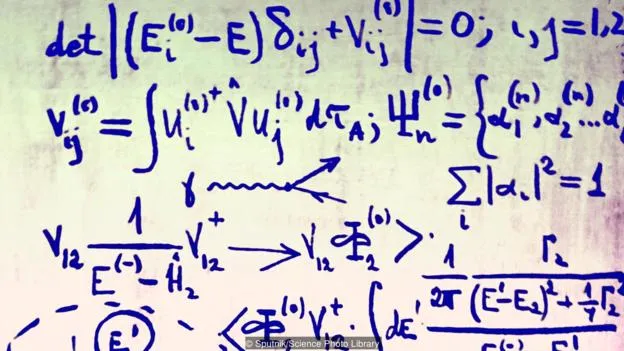 det |(E_i^(0) − E) δ_ij + V_ij^(0)| = 0; i, j = 1,2
V_ij^(0) = ∫ U_i^(0)+ V̂ U_j^(0) dτ_A; Ψ_n^(0) = {α_1^(n), α_2^(n) ... α
γ Σ_i |α_i|^2 = 1
V_12 1/(E^(-) − Ĥ_2) V_12^+ → V_12 Φ_2^(0) > . 1/2π Γ_2/((E' − E_2)^2 + 1/4 Γ_2^2
E' < Φ^(0) V_12^+ · ∫ dE'
© Sputnik/Science Photo Library